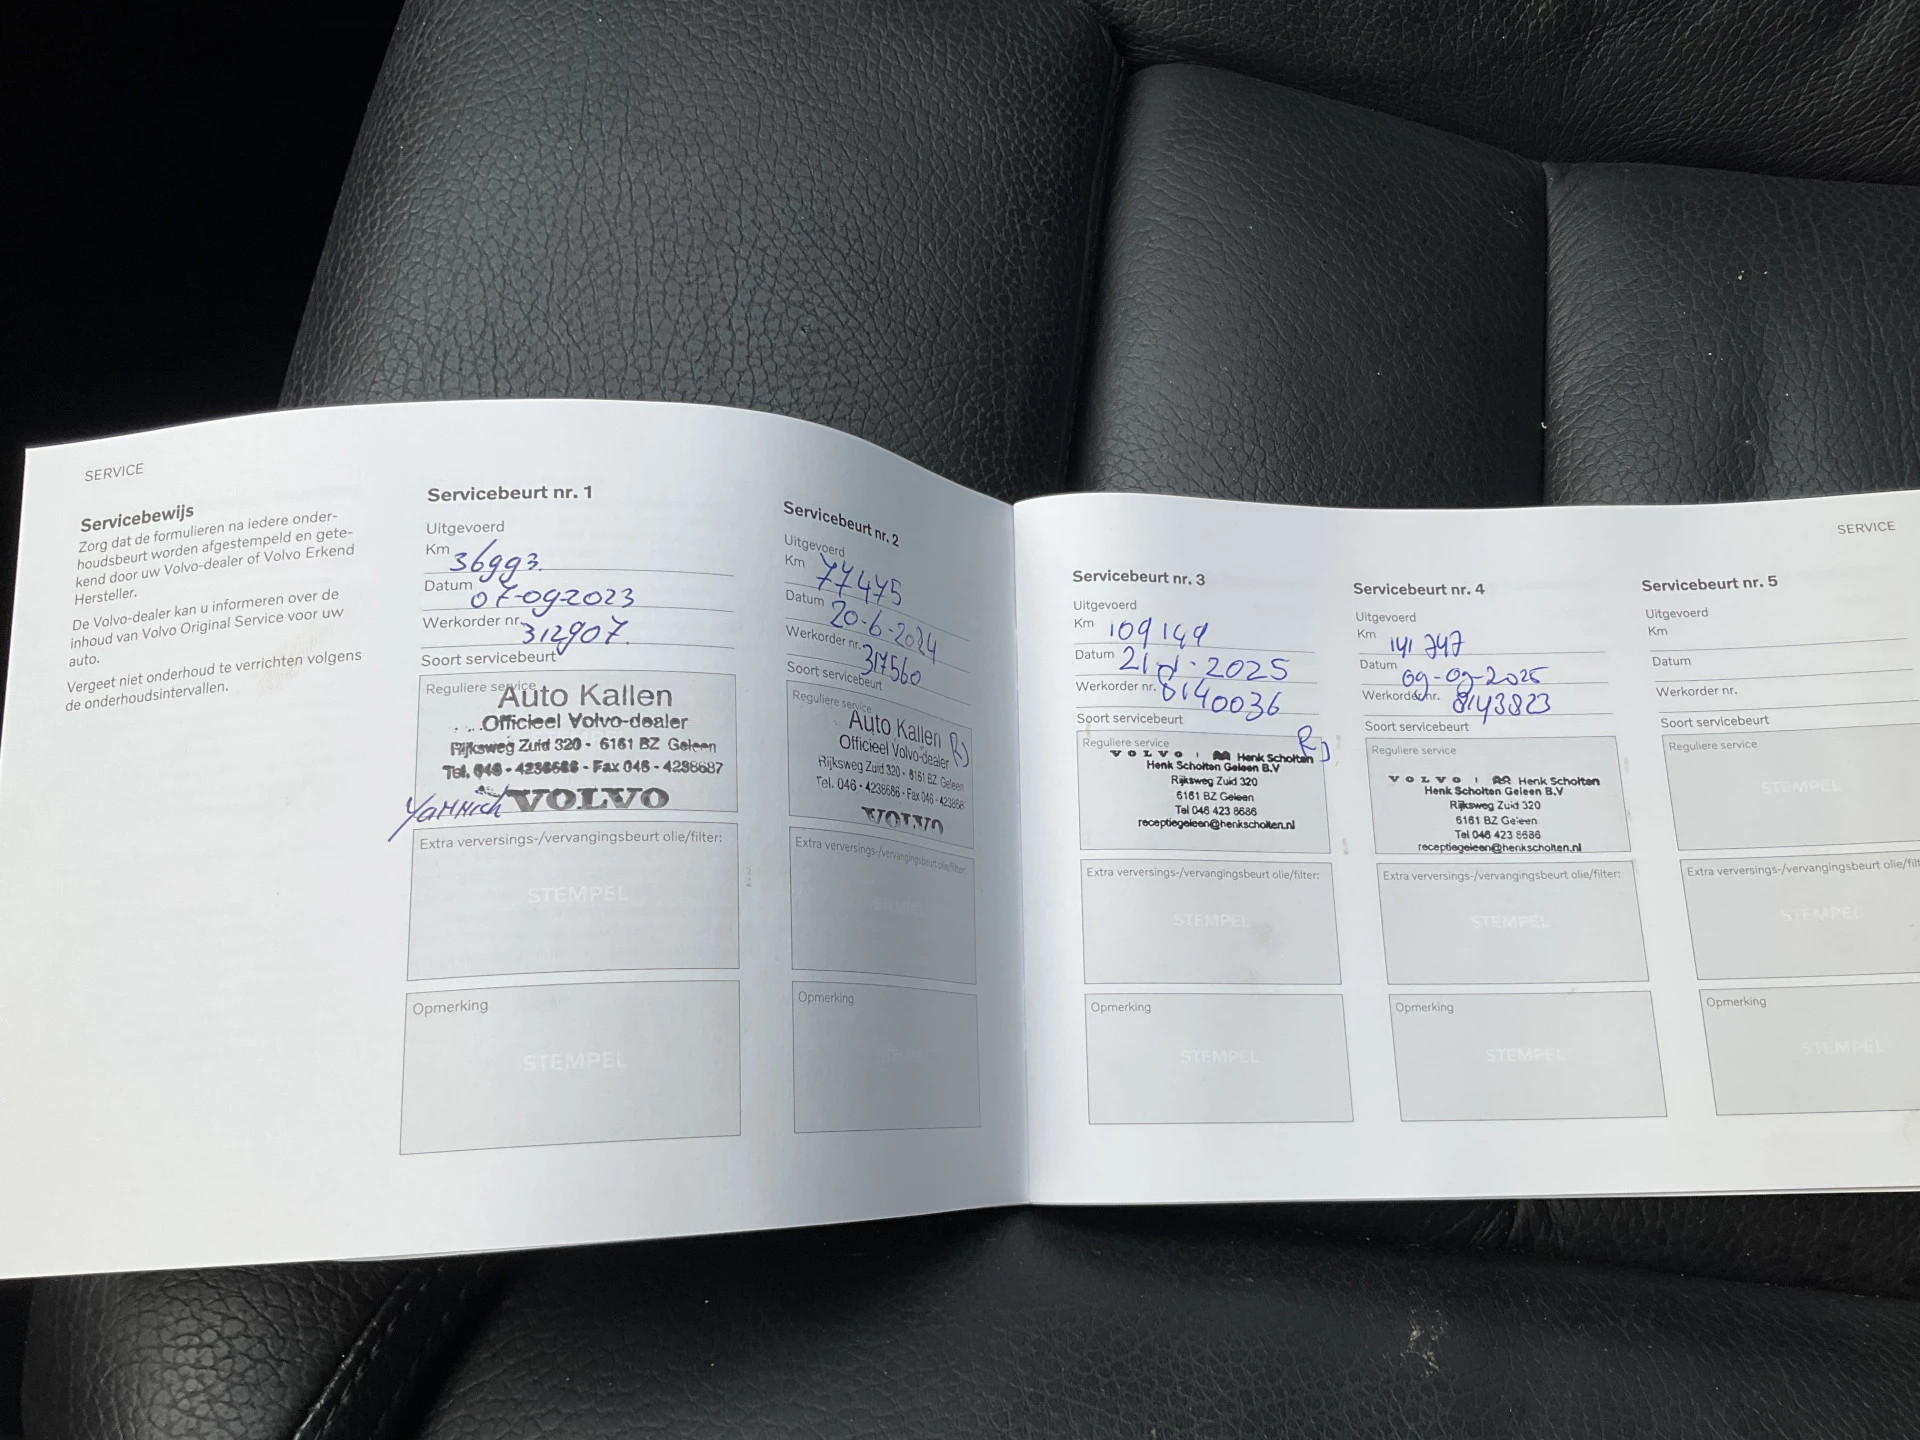 SERVICE
Servicebewijs
Zorg dat de formulieren na iedere onder-
houdsbeurt worden afgestempeld en gete-
kend door uw Volvo-dealer of Volvo Erkend
Hersteller.
De Volvo-dealer kan u informeren over de
inhoud van Volvo Original Service voor uw
auto.
Vergeet niet onderhoud te verrichten volgens
de onderhoudsintervallen.
Servicebeurt nr. 1
Uitgevoerd
Km 36993.
Datum 07-09-2023
Werkorder nr. 312907.
Soort servicebeurt
Reguliere service
Auto Kallen
Officieel Volvo-dealer
Rijksweg Zuid 320 - 6161 BZ Geleen
Tel. 046 - 4238686 - Fax 046 - 4238687
VOLVO
Yannick
Extra verversings-/vervangingsbeurt olie/filter:
STEMPEL
Opmerking
STEMPEL
Servicebeurt nr. 2
Uitgevoerd
Km 77475
Datum 20-6-2024
Werkorder nr. 317560
Soort servicebeurt
Reguliere service
Auto Kallen
Officieel Volvo-dealer
Rijksweg Zuid 320 - 6161 BZ Geleen
Tel. 046 - 4238686 - Fax 046 - 423868
VOLVO
Extra verversings-/vervangingsbeurt olie/filter:
STEMPEL
Opmerking
SERVICE
Servicebeurt nr. 3
Uitgevoerd
Km 109149
Datum 2025
Werkorder nr. 8140036
Soort servicebeurt
Reguliere service
VOLVO | Henk Scholten
Henk Scholten Geleen B.V
Rijksweg Zuid 320
6161 BZ Geleen
Tel 046 423 8686
receptiegeleen@henkscholten.nl
Extra verversings-/vervangingsbeurt olie/filter:
STEMPEL
Opmerking
STEMPEL
Servicebeurt nr. 4
Uitgevoerd
Km 141747
Datum 09-09-2025
Werkorder nr. 8143823
Soort servicebeurt
Reguliere service
VOLVO | Henk Scholten
Henk Scholten Geleen B.V
Rijksweg Zuid 320
6161 BZ Geleen
Tel 046 423 8686
receptiegeleen@henkscholten.nl
Extra verversings-/vervangingsbeurt olie/filter:
STEMPEL
Opmerking
STEMPEL
Servicebeurt nr. 5
Uitgevoerd
Km
Datum
Werkorder nr.
Soort servicebeurt
Reguliere service
STEMPEL
Extra verversings-/vervangingsbeurt olie/filt
STEMPEL
Opmerking
STEMPEL